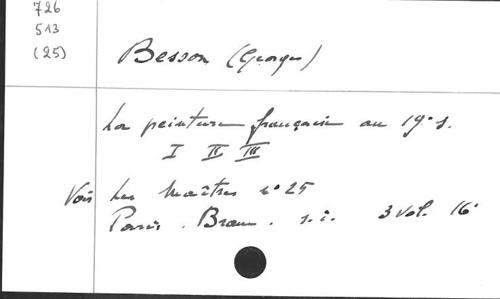 726
513
(25)
Besson (Georges)
La peinture française au 19e s.
I II III
Voir Les Maîtres n° 25
Paris. Braun. s.d. 3 vol. 16°